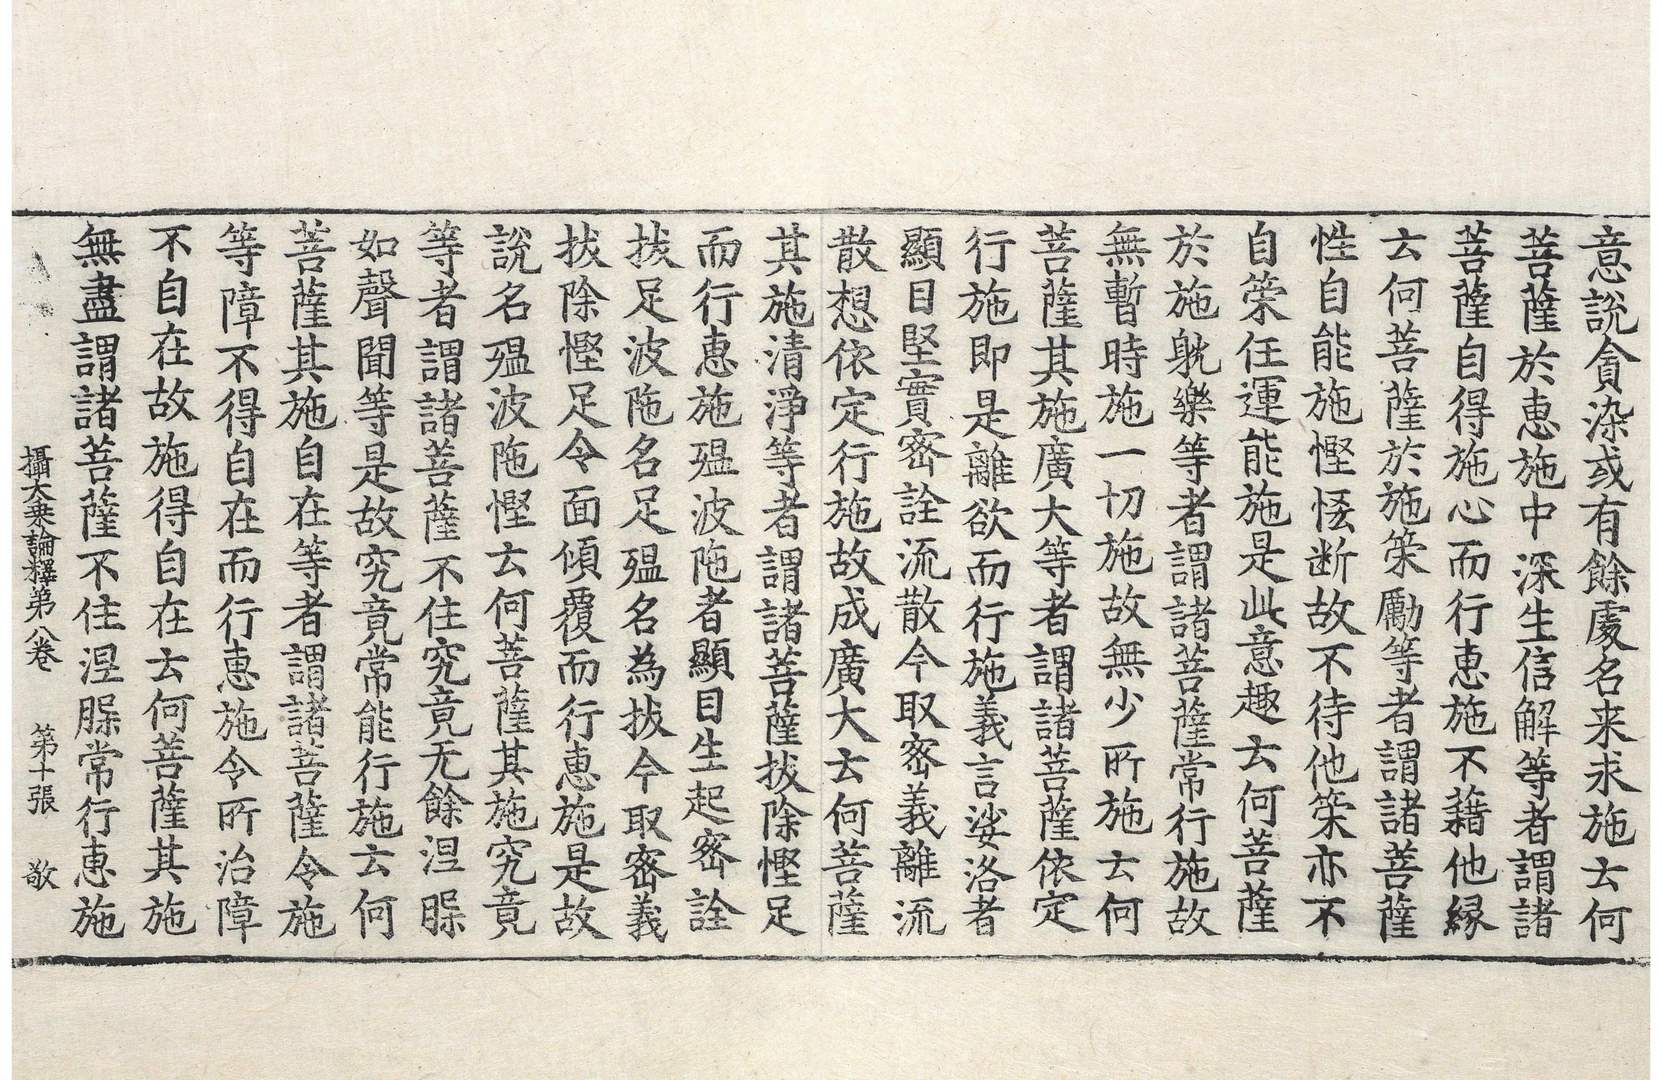 意說貪染或有餘處名来求施云何
菩薩於恵施中深生信解等者謂諸
菩薩自得施心而行恵施不藉他縁
云何菩薩於施策勵等者謂諸菩薩
性自能施慳悋断故不待他策亦不
自策任運能施是此意趣云何菩薩
於施躭樂等者謂諸菩薩常行施故
無暫時施一切施故無少所施云何
菩薩其施廣大等者謂諸菩薩依定
行施即是離欲而行施義言娑洛者
顯目堅實密詮流散今取密義離流
散想依定行施故成廣大云何菩薩
其施清淨等者謂諸菩薩拔除慳足
而行恵施殟波陁者顯目生起密詮
拔足波陁名足殟名為拔今取密義
拔除慳足令面傾覆而行恵施是故
說名殟波陁慳云何菩薩其施究竟
等者謂諸菩薩不住究竟无餘涅槃
如聲聞等是故究竟常能行施云何
菩薩其施自在等者謂諸菩薩令施
等障不得自在而行恵施令所治障
不自在故施得自在云何菩薩其施
無盡謂諸菩薩不住涅槃常行恵施
攝大乗論釋第八卷 第十張 敬